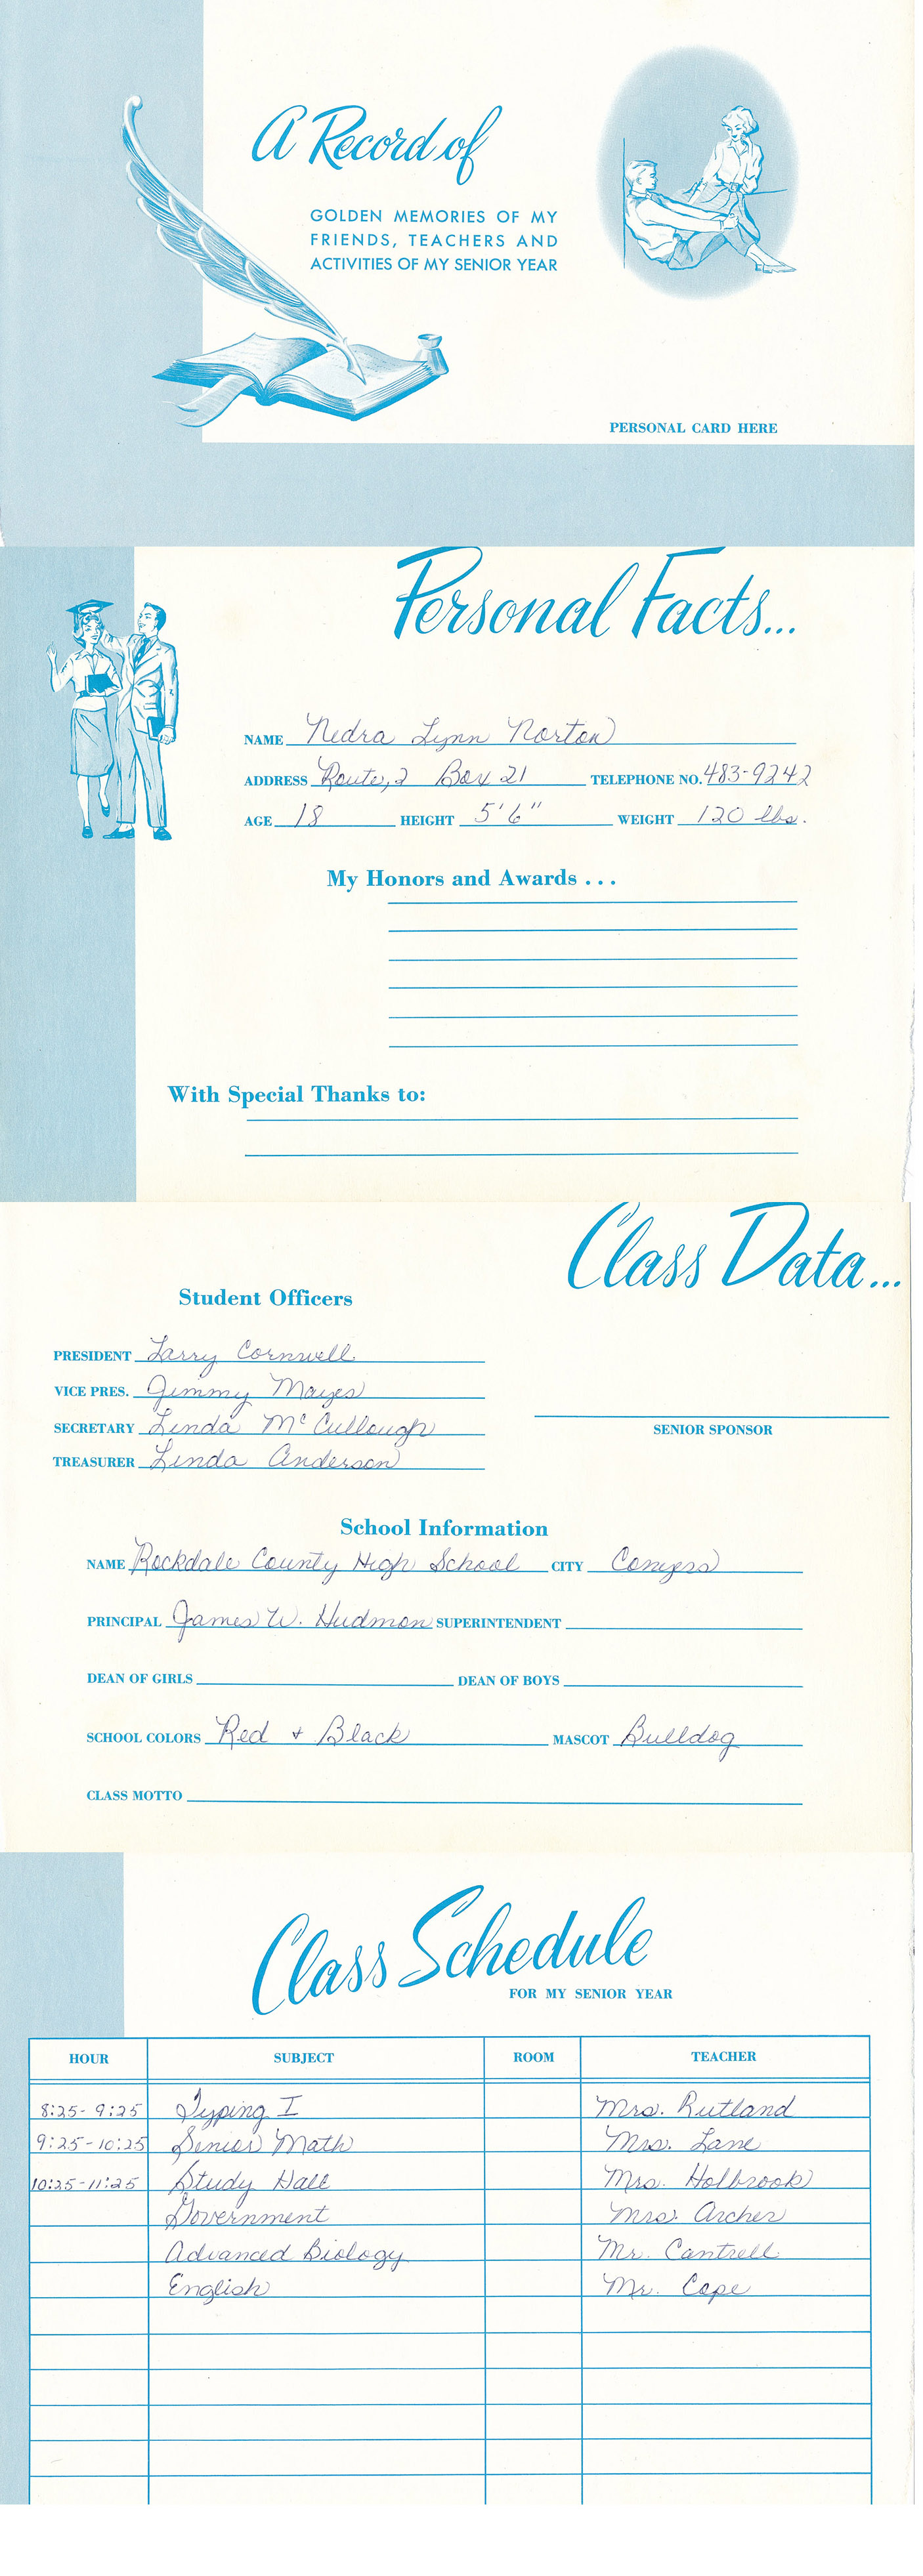 A Record of
GOLDEN MEMORIES OF MY
FRIENDS, TEACHERS AND
ACTIVITIES OF MY SENIOR YEAR
PERSONAL CARD HERE
Personal Facts...
NAME Nedra Lynn Norton
ADDRESS Route, 2 Box 21 TELEPHONE NO. 483-9242
AGE 18 HEIGHT 5'6" WEIGHT 120 lbs.
My Honors and Awards . . .
With Special Thanks to:
Class Data...
Student Officers
PRESIDENT Larry Cornwell
VICE PRES. Jimmy Mayes
SECRETARY Linda McCullough
TREASURER Linda Anderson
SENIOR SPONSOR
School Information
NAME Rockdale County High School CITY Conyers
PRINCIPAL James W. Hudmon SUPERINTENDENT
DEAN OF GIRLS DEAN OF BOYS
SCHOOL COLORS Red + Black MASCOT Bulldog
CLASS MOTTO
Class Schedule
FOR MY SENIOR YEAR
HOUR SUBJECT ROOM TEACHER
8:25-9:25 Typing I Mrs. Rutland
9:25-10:25 Senior Math Mrs. Lane
10:25-11:25 Study Hall Mrs. Holbrook
Government Mrs. Archer
Advanced Biology Mr. Cantrell
English Mr. Cope